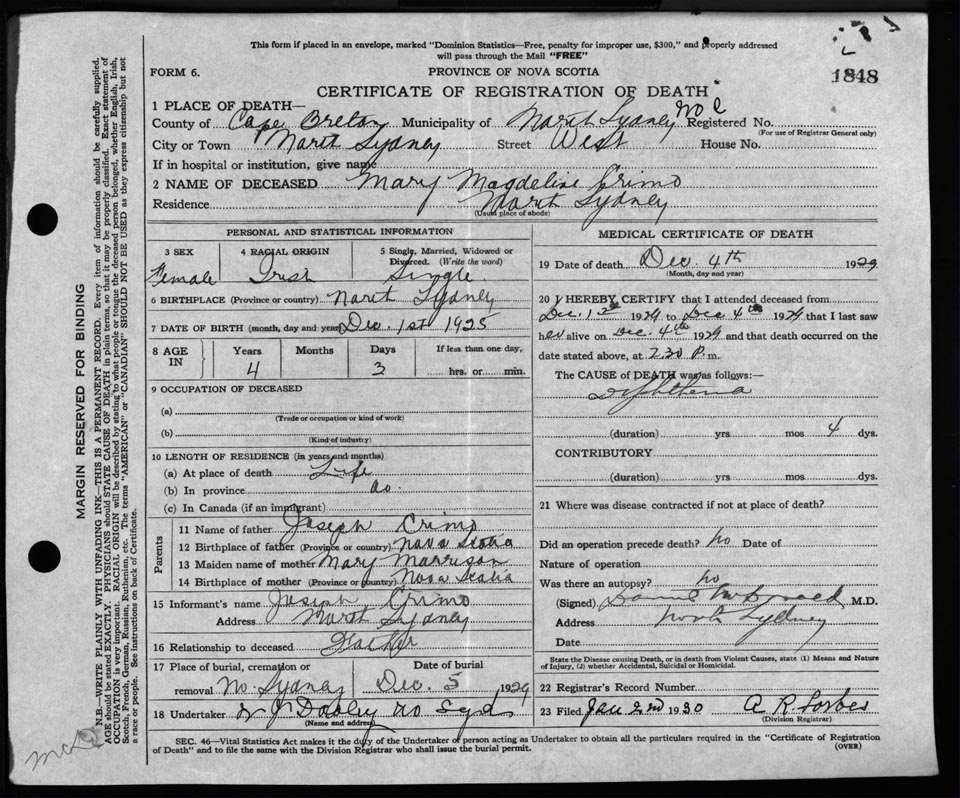 This form if placed in an envelope, marked "Dominion Statistics—Free, penalty for improper use, $300," and properly addressed
will pass through the Mail "FREE"
FORM 6.
PROVINCE OF NOVA SCOTIA
1848
CERTIFICATE OF REGISTRATION OF DEATH
1 PLACE OF DEATH—
County of Cape Breton Municipality of North Sydney Registered No.
(For use of Registrar General only)
City or Town North Sydney Street West House No.
If in hospital or institution, give name
2 NAME OF DECEASED Mary Magdeline Crimo
Residence North Sydney
(Usual place of abode)
PERSONAL AND STATISTICAL INFORMATION
3 SEX 4 RACIAL ORIGIN 5 Single, Married, Widowed or Divorced. (Write the word)
Female Irish Single
6 BIRTHPLACE (Province or country) North Sydney
7 DATE OF BIRTH (month, day and year) Dec. 1st 1925
8 AGE IN Years Months Days If less than one day,
4 3 hrs. or min.
9 OCCUPATION OF DECEASED
(a)
(Trade or occupation or kind of work)
(b)
(Kind of industry)
10 LENGTH OF RESIDENCE (in years and months)
(a) At place of death Life
(b) In province do.
(c) In Canada (if an immigrant)
Parents
11 Name of father Joseph Crimo
12 Birthplace of father (Province or country) Nova Scotia
13 Maiden name of mother Mary Morrison
14 Birthplace of mother (Province or country) Nova Scotia
15 Informant's name Joseph Crimo
Address North Sydney
16 Relationship to deceased Father
17 Place of burial, cremation or removal No. Sydney
Date of burial Dec. 5 1929
18 Undertaker Dooley No Syd
(Name and address)
MEDICAL CERTIFICATE OF DEATH
19 Date of death Dec. 4th 1929
(Month, day and year)
20 I HEREBY CERTIFY that I attended deceased from
Dec. 1st 1929 to Dec 4th 1929 that I last saw
her alive on Dec. 4th 1929 and that death occurred on the
date stated above, at 2.30 P.m.
The CAUSE of DEATH was as follows:—
Diphtheria
(duration) yrs mos 4 dys.
CONTRIBUTORY
(duration) yrs mos dys.
21 Where was disease contracted if not at place of death?
Did an operation precede death? no Date of
Nature of operation
Was there an autopsy? no
(Signed) M.D.
Address North Sydney
Date
State the Disease causing Death, or in death from Violent Causes, state (1) Means and Nature
of Injury, (2) whether Accidental, Suicidal or Homicidal.
22 Registrar's Record Number
23 Filed Jan 2nd 1930 A R Forbes
(Division Registrar)
SEC. 46—Vital Statistics Act makes it the duty of the Undertaker or person acting as Undertaker to obtain all the particulars required in the "Certificate of Registration
of Death" and to file the same with the Division Registrar who shall issue the burial permit.
(OVER)
MARGIN RESERVED FOR BINDING
N.B.—WRITE PLAINLY WITH UNFADING INK—THIS IS A PERMANENT RECORD. Every item of information should be carefully supplied.
AGE should be stated EXACTLY. PHYSICIANS should STATE CAUSE OF DEATH in plain terms, so that it may be properly classified. Exact statement of
OCCUPATION is very important. RACIAL ORIGIN will be described by stating to what people or tongue the deceased person belonged, whether English, Irish,
Scotch, French, German, Russian, Ruthenian, etc. The terms "AMERICAN" or "CANADIAN" SHOULD NOT BE USED as they express citizenship but not
a race or people. See instructions on back of Certificate.